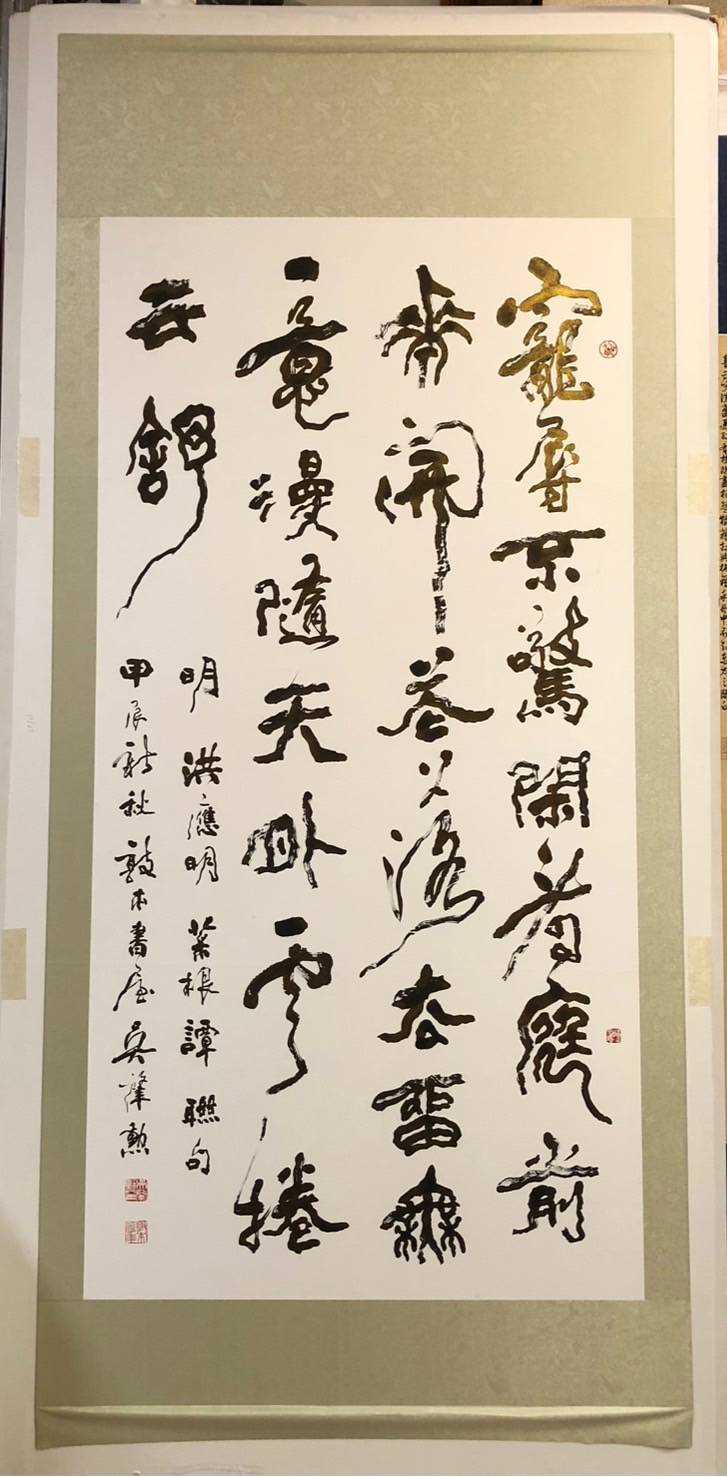 寵辱不驚閑看庭前
花開花落去留無
意漫隨天外雲捲
云舒
明 洪應明 菜根譚 聯句
甲辰新秋 書屋 吳肇勳